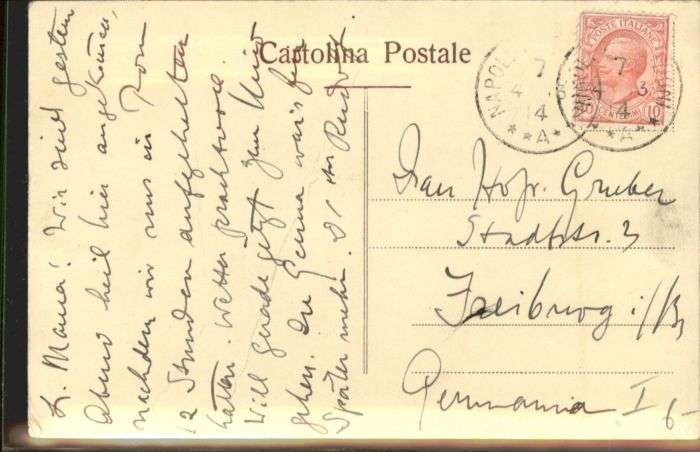 Cartolina Postale
L. Mama! Wir sind gestern
Abend heil hier angekommen,
nachdem wir uns in Rom
12 Stunden aufgehalten
hatten. Wetter prachtvoll.
Will gerade jetzt zum
gehen. In Genua war's fein
Später mehr. Dr Rudolf.
POSTE ITALIANE
10
NAPOLI
7
4
14
* * A *
NAPOLI
7
4
* * A *
Frau Hofr. Gruber
Stadtstr. 3
Freiburg i/Br
Germania I